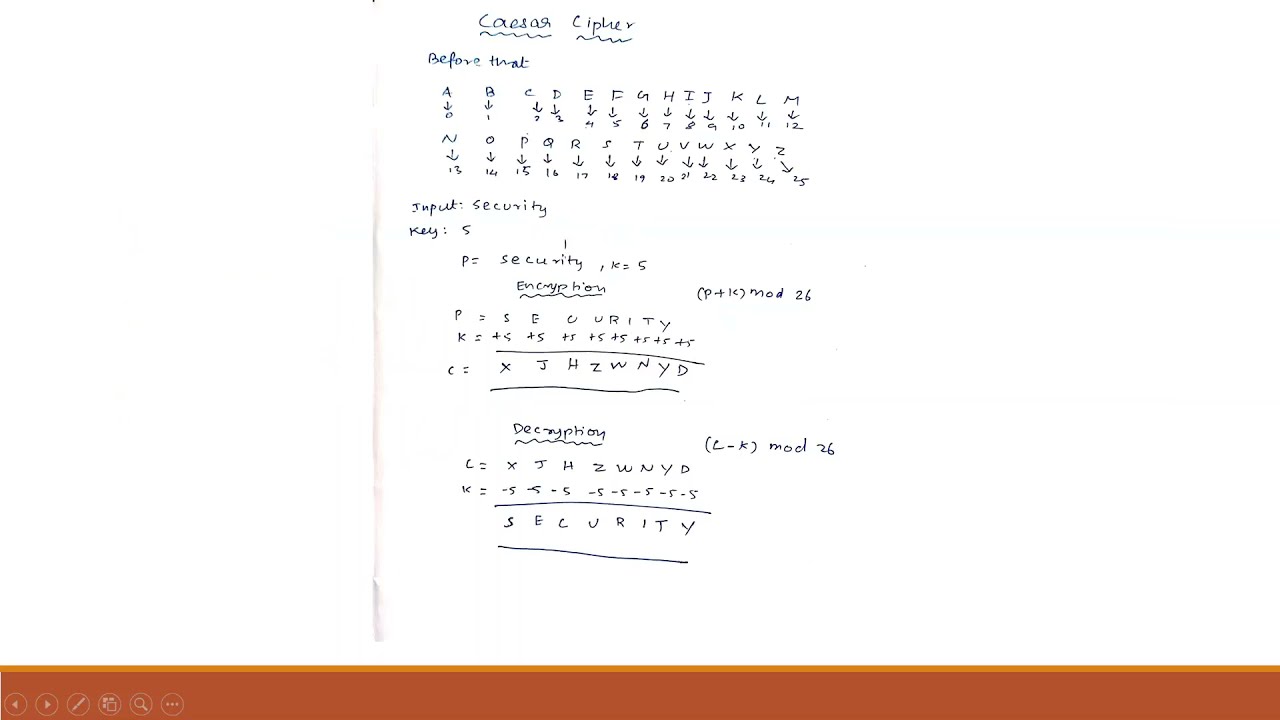 Caesar Cipher
Before that
A B C D E F G H I J K L M
↓ ↓ ↓ ↓ ↓ ↓ ↓ ↓ ↓ ↓ ↓ ↓ ↓
0 1 2 3 4 5 6 7 8 9 10 11 12
N O P Q R S T U V W X Y Z
↓ ↓ ↓ ↓ ↓ ↓ ↓ ↓ ↓ ↓ ↓ ↓ ↓
13 14 15 16 17 18 19 20 21 22 23 24 25
Input: security
Key: 5
P= security, K=5
Encryption (P+K) mod 26
P = S E C U R I T Y
K = +5 +5 +5 +5 +5 +5 +5 +5
C = X J H Z W N Y D
Decryption (C-K) mod 26
C = X J H Z W N Y D
K = -5 -5 -5 -5 -5 -5 -5 -5
S E C U R I T Y